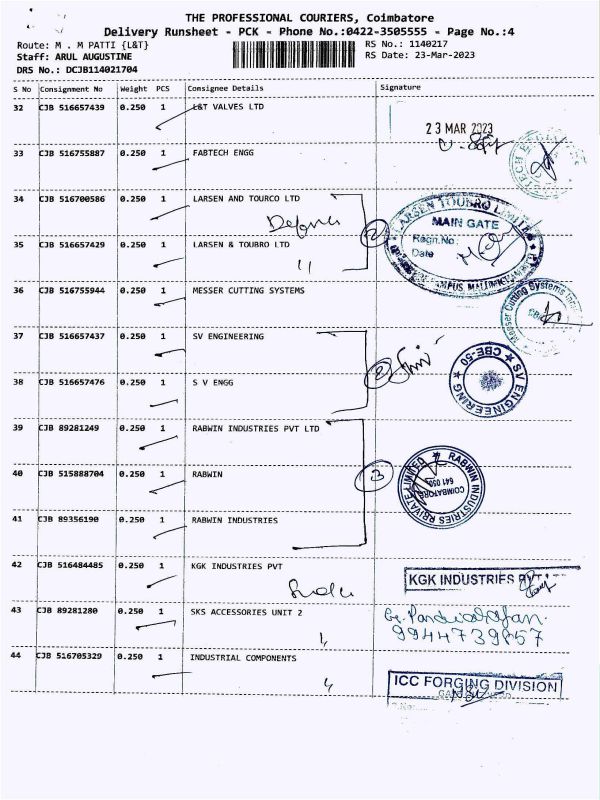 THE PROFESSIONAL COURIERS, Coimbatore
Delivery Runsheet - PCK - Phone No.:0422-3505555 - Page No.:4
Route: M . M PATTI {L&T}
RS No.: 1140217
Staff: ARUL AUGUSTINE
RS Date: 23-Mar-2023
DRS No.: DCJB114021704
S No Consignment No Weight PCS Consignee Details Signature
32 CJB 516657439 0.250 1 L&T VALVES LTD
23 MAR 2023
33 CJB 516755887 0.250 1 FABTECH ENGG
34 CJB 516700586 0.250 1 LARSEN AND TOURCO LTD
LARSEN TOUBRO LIMITED
MAIN GATE
Regn.No.:
Date
2
35 CJB 516657429 0.250 1 LARSEN & TOUBRO LTD
36 CJB 516755944 0.250 1 MESSER CUTTING SYSTEMS
Messer Cutting Systems
37 CJB 516657437 0.250 1 SV ENGINEERING
2
SV ENGINEERING
CBE-50
38 CJB 516657476 0.250 1 S V ENGG
39 CJB 89281249 0.250 1 RABWIN INDUSTRIES PVT LTD
40 CJB 515888704 0.250 1 RABWIN
3
RABWIN INDUSTRIES PRIVATE LIMITED
COIMBATORE
641 050
41 CJB 89356190 0.250 1 RABWIN INDUSTRIES
42 CJB 516484485 0.250 1 KGK INDUSTRIES PVT
KGK INDUSTRIES
43 CJB 89281280 0.250 1 SKS ACCESSORIES UNIT 2
9944739857
44 CJB 516705329 0.250 1 INDUSTRIAL COMPONENTS
ICC FORGING DIVISION